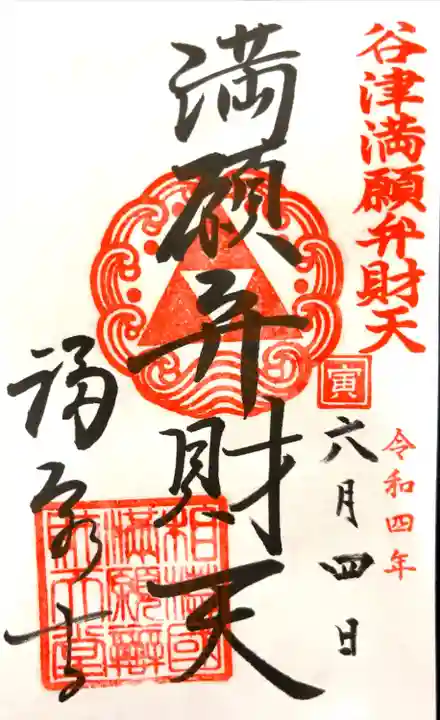 谷津満願弁財天
寅
令和四年
六月四日
満願弁財天